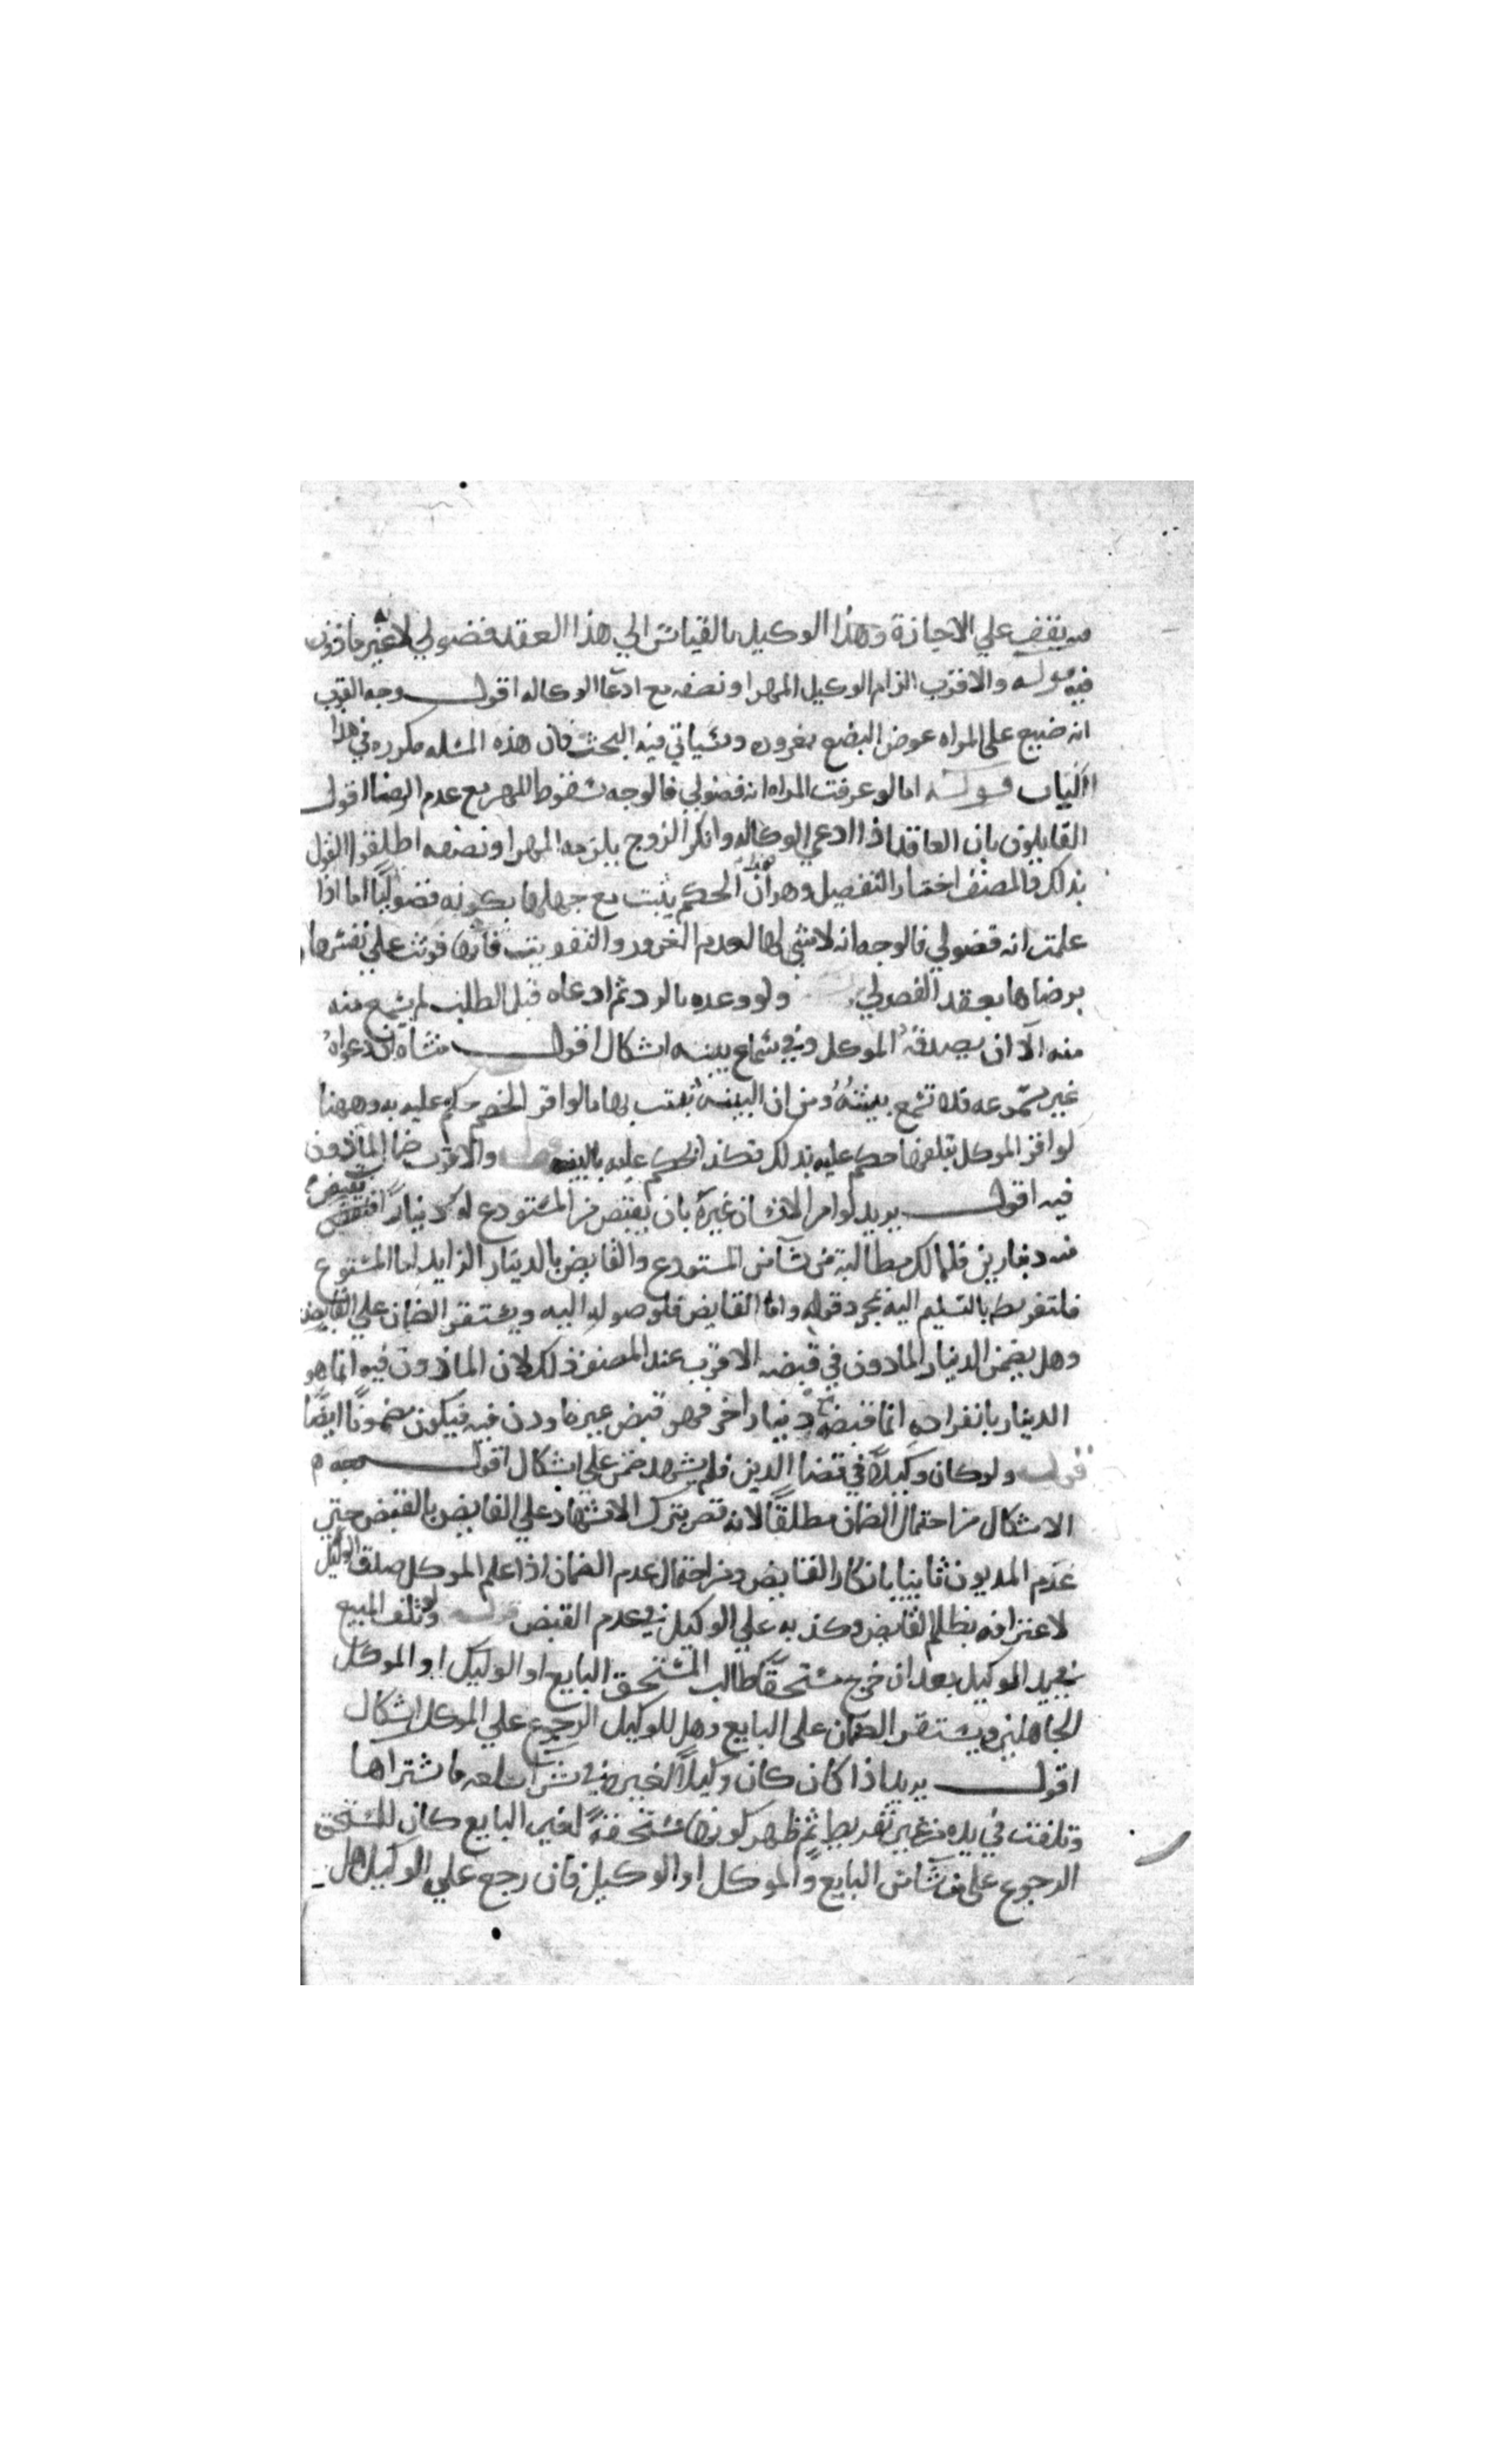 فيه يقف علي الاجازة وهذا الوكيل بالقياس الي هذا العقد فضولي لانه غير ماذون
فيه قوله والاقرب الزام الوكيل المهر او نصفه مع ادعا الوكاله اقول وجه القرب
انه ضيع على المراه عوض البضع بغروره وسياتي فيه البحث فان هذه المسله مكرره في هذا
الكتاب قوله اما لو عرفت المراه انه فضولي فالوجه سقوط المهر مع عدم الرضا اقول
القايلون بان العاقد اذا ادعي الوكاله وانكر الزوج يلزمه المهر او نصفه اطلقوا القول
بذلك والمصنف اختار التفصيل وهو ان هذا الحكم يثبت مع جهلها بكونه فضوليا اما اذا
علمت انه فضولي فالوجه انه لا شي لها لعدم الغرور والتفويت فانها فوتت علي نفسها
برضاها بعقد الفضولي ولو وعده بالرد ثم ادعاه قبل الطلب لم يسمع منه
منه الا ان يصدقه الموكل وفي سماع بينته اشكال اقول منشاه ان دعواه
غير مسموعه فلا تسمع بينته ومن ان البينه تثبت بها ما لو اقر الخصم حكم عليه به وههنا
لو اقر الموكل بتلفها حكم عليه بذلك فكذا يحكم عليه بالبينه قوله والاقرب ضمان الماذون
فيه اقول يريد لو امر الانسان غيره بان يقبض من المستودع له دينارا فقبض
منه دينارين فللمالك مطالبة من شا من المستودع والقابض بالدينار الزايد اما المستودع
فلتفريطه بالتسليم اليه بمجرد قوله واما القابض فلوصوله اليه ويستقر الضمان علي القابض
وهل يضمن الدينار الماذون في قبضه الاقرب عند المصنف ذلك لان الماذون فيه انما هو
الدينار بانفراده انما قبضه مع دينار اخر فهو قبض غير ماذون فيه فيكون مضمونا ايضا
قوله ولو كان وكيلا في قضا الدين فلم يشهد ضمن علي اشكال اقول وجه
الاشكال من احتمال الضمان مطلقا لانه قصر بترك الاشهاد علي القابض بالقبض حتي
غرم المديون ثانيا بانكار القابض ومن احتمال عدم الضمان اذا علم الموكل صدق الوكيل
لاعترافه بظلم القابض وكذبه علي الوكيل في عدم القبض قوله ولو تلف المبيع
في يد الوكيل بعد ان خرج مستحقا طالب المستحق البايع او الوكيل او الموكل
الجاهلين ويستقر الضمان على البايع وهل للوكيل الرجوع علي الموكل اشكال
اقول يريد اذا كان كان وكيلا لغيره في شرا سلعه فاشتراها
وتلفت في يده من غير تفريط ثم ظهر كونها مستحقة لغير البايع كان للمستحق
الرجوع على من شا من البايع والموكل او الوكيل فان رجع علي الوكيل هل